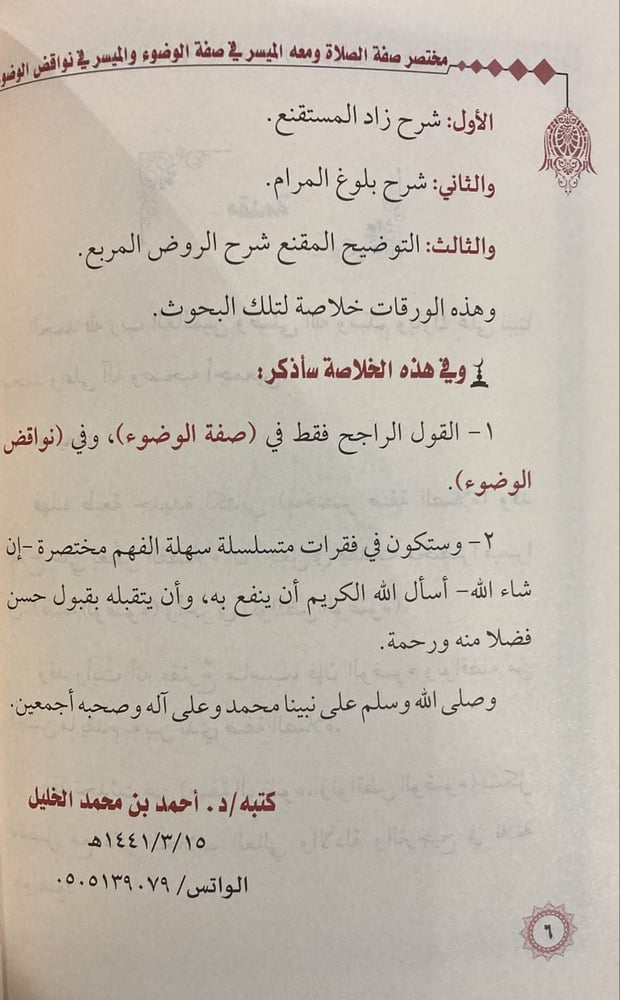 مختصر صفة الصلاة ومعه الميسر في صفة الوضوء والميسر في نواقض الوضوء
الأول: شرح زاد المستقنع.
والثاني: شرح بلوغ المرام.
والثالث: التوضيح المقنع شرح الروض المربع.
وهذه الورقات خلاصة لتلك البحوث.
وفي هذه الخلاصة سأذكر:
١- القول الراجح فقط في (صفة الوضوء)، وفي (نواقض
الوضوء).
٢- وستكون في فقرات متسلسلة سهلة الفهم مختصرة -إن
شاء الله- أسأل الله الكريم أن ينفع به، وأن يتقبله بقبول حسن
فضلا منه ورحمة.
وصلى الله وسلم على نبينا محمد وعلى آله وصحبه أجمعين.
كتبه/د. أحمد بن محمد الخليل
١٤٤١/٣/١٥هـ
الواتس/ ٠٥٠٥١٣٩٠٧٩
٦